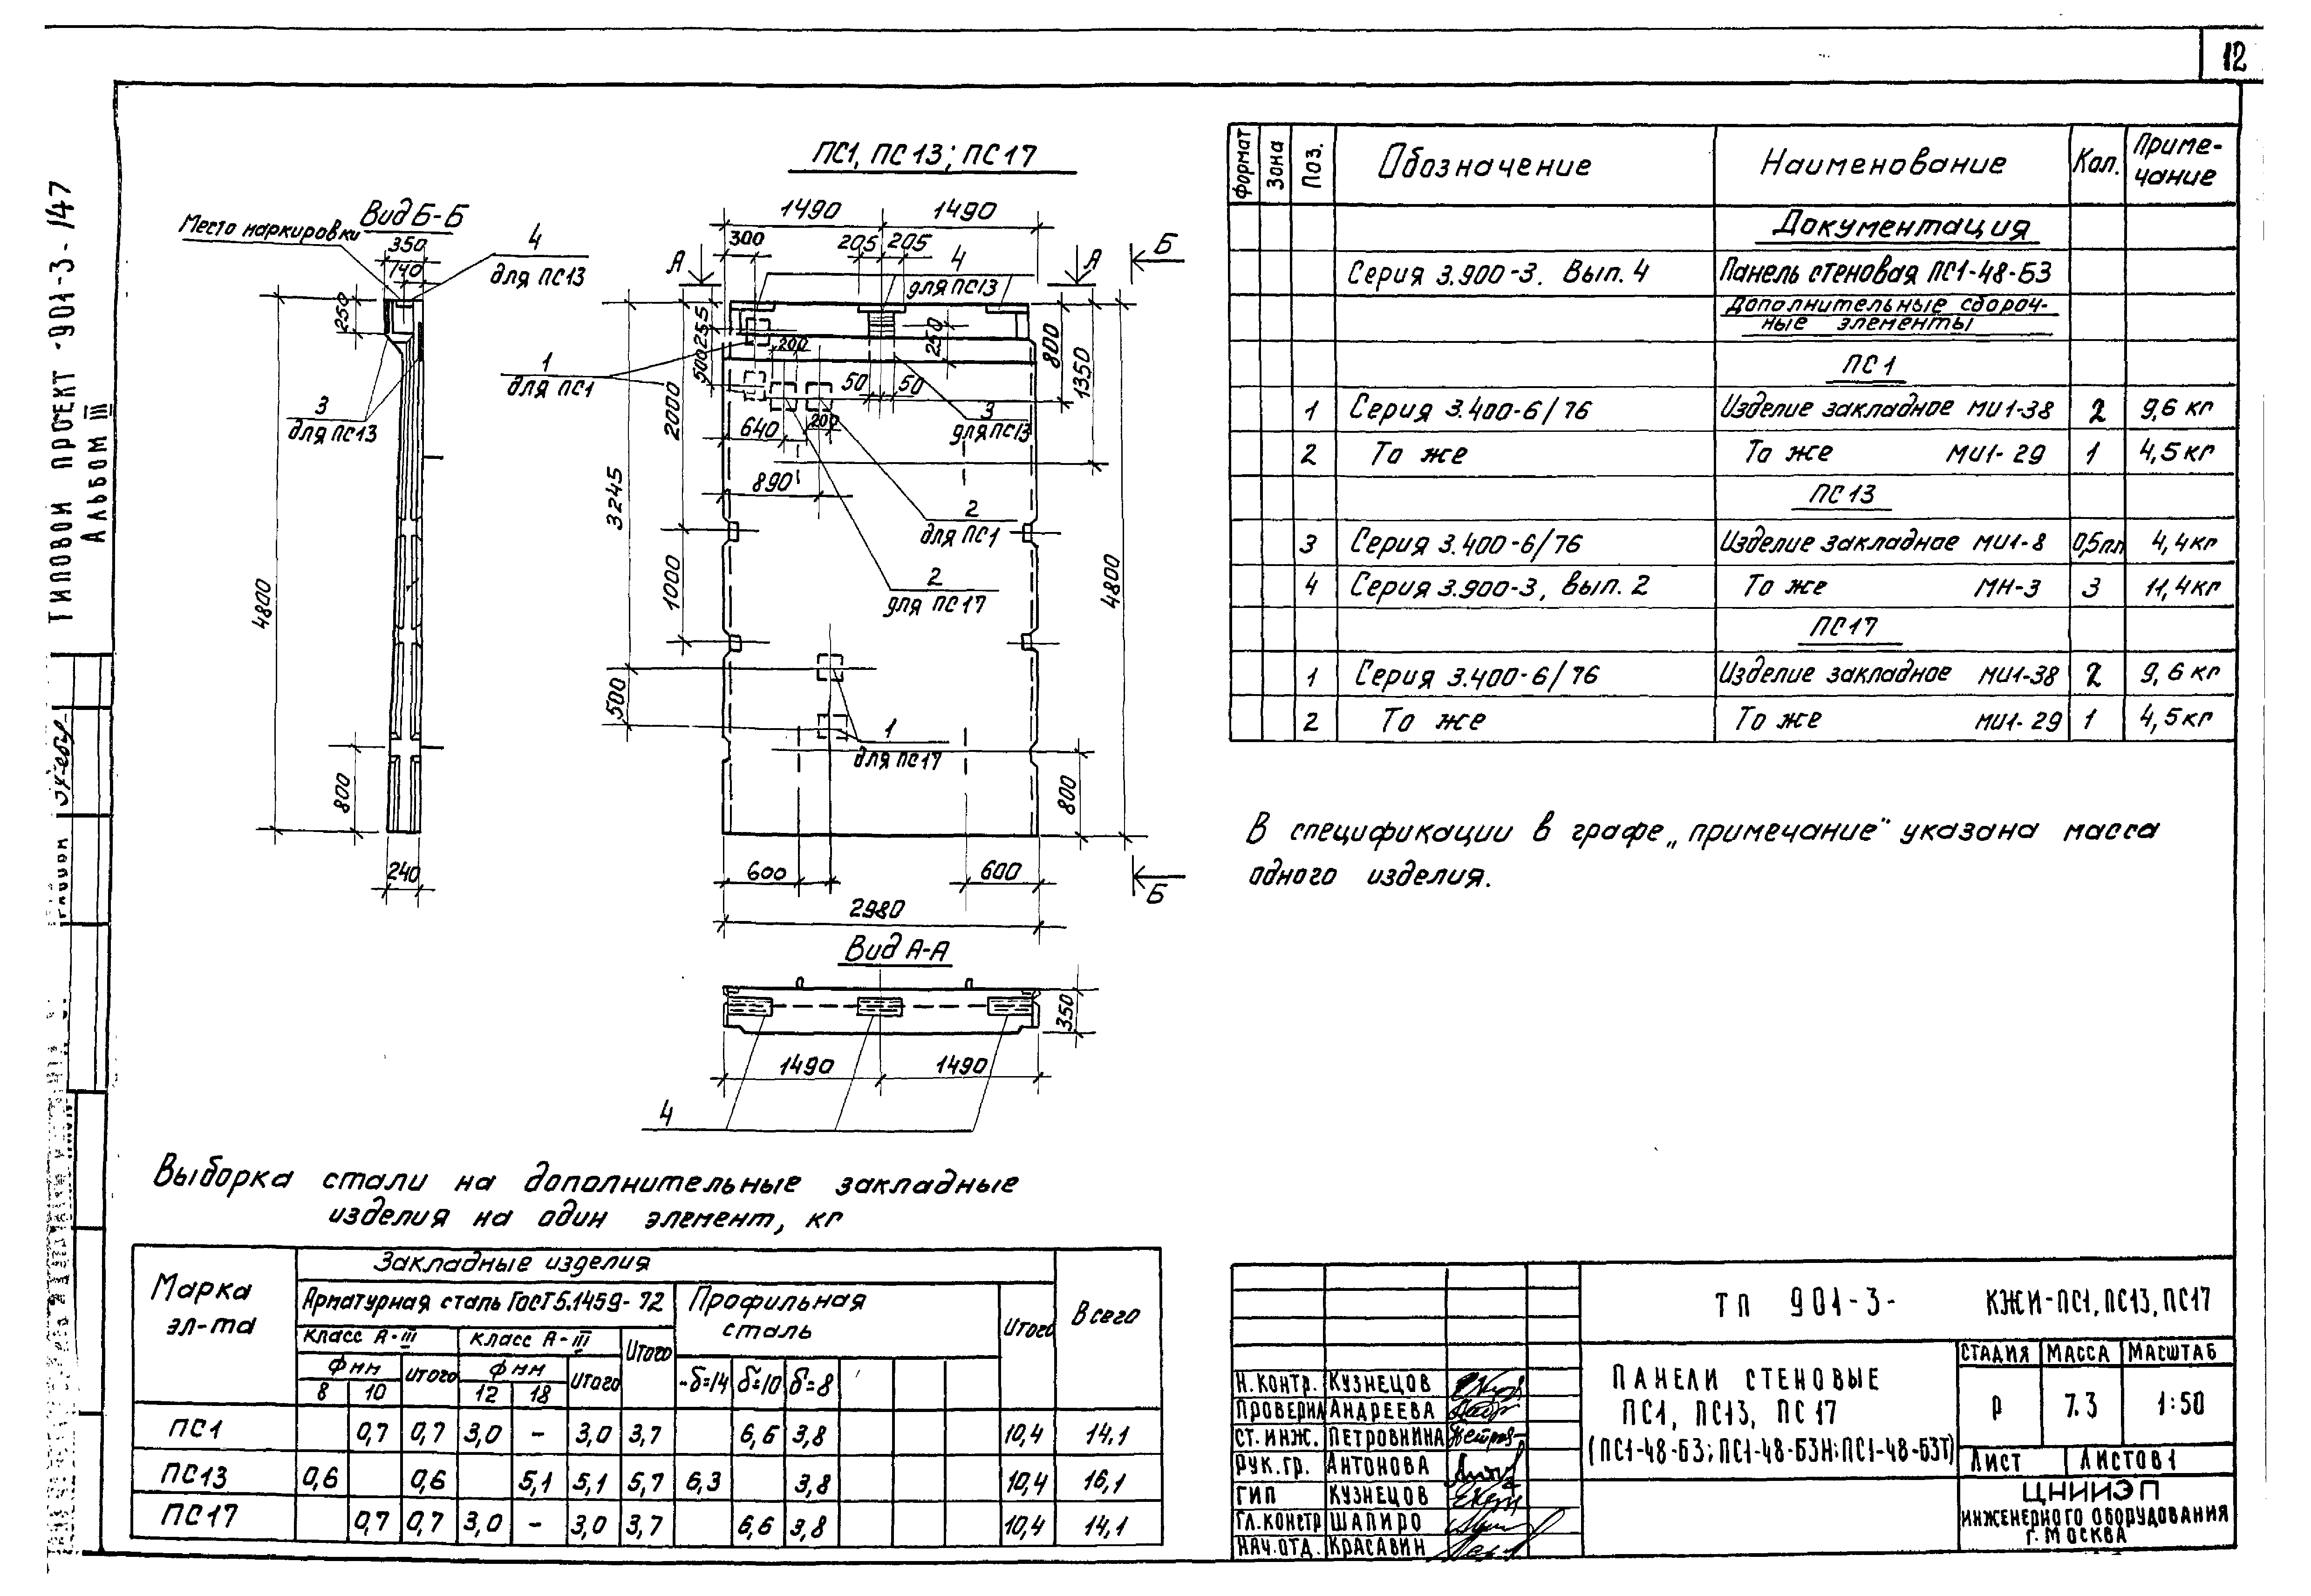 12
ТИПОВОЙ ПРОЕКТ 901-3-147
АЛЬБОМ III
ПС1, ПС13; ПС17
Вид Б-Б
Место маркировки
4
для ПС13
350
140
250
3
для ПС13
4800
800
240
1490 1490
300 205 205
А А Б
4
для ПС13
255
500
200
1
для ПС1
2000
3245
250
800
1350
50 50
3
для ПС13
640
200
890
2
для ПС1
2
для ПС17
1000
4800
500
1
для ПС17
800
600 600
Б
2980
Вид А-А
350
1490 1490
4
Формат Зона Поз. Обозначение Наименование Кол. Приме-
чание
Документация
Серия 3.900-3. Вып. 4 Панель стеновая ПС1-48-Б3
Дополнительные сбороч-
ные элементы
ПС1
1 Серия 3.400-6/76 Изделие закладное МИ1-38 2 9,6 кг
2 То же То же МИ1-29 1 4,5 кг
ПС13
3 Серия 3.400-6/76 Изделие закладное МИ1-8 0,5п.п 4,4кг
4 Серия 3.900-3, вып. 2 То же МН-3 3 11,4кг
ПС17
1 Серия 3.400-6/76 Изделие закладное МИ1-38 2 9,6 кг
2 То же То же МИ1-29 1 4,5кг
В спецификации в графе „примечание" указана масса
одного изделия.
Выборка стали на дополнительные закладные
изделия на один элемент, кг
Марка
эл-та
Закладные изделия
Всего
Арматурная сталь ГОСТ 5.1459-72 Профильная
сталь
Итого
Класс А-III Класс А-III Итого
Ф мм Итого Ф мм Итого -δ=14 δ=10 δ=8
8 10 12 18
ПС1 0,7 0,7 3,0 – 3,0 3,7 6,6 3,8 10,4 14,1
ПС13 0,6 0,6 5,1 5,1 5,7 6,3 3,8 10,4 16,1
ПС17 0,7 0,7 3,0 – 3,0 3,7 6,6 3,8 10,4 14,1
ТП 901-3- КЖИ-ПС1, ПС13, ПС17
ПАНЕЛИ СТЕНОВЫЕ
ПС1, ПС13, ПС17
(ПС1-48-Б3; ПС1-48-Б3Н; ПС1-48-Б3Т)
СТАДИЯ МАССА МАСШТАБ
Р 7.3 1:50
ЛИСТ ЛИСТОВ 1
ЦНИИЭП
ИНЖЕНЕРНОГО ОБОРУДОВАНИЯ
Г. МОСКВА
Н.КОНТР. КУЗНЕЦОВ
ПРОВЕРИЛ АНДРЕЕВА
СТ.ИНЖ. ПЕТРОВНИНА
РУК.ГР. АНТОНОВА
ГИП КУЗНЕЦОВ
ГЛ.КОНСТР ШАПИРО
НАЧ.ОТД. КРАСАВИН